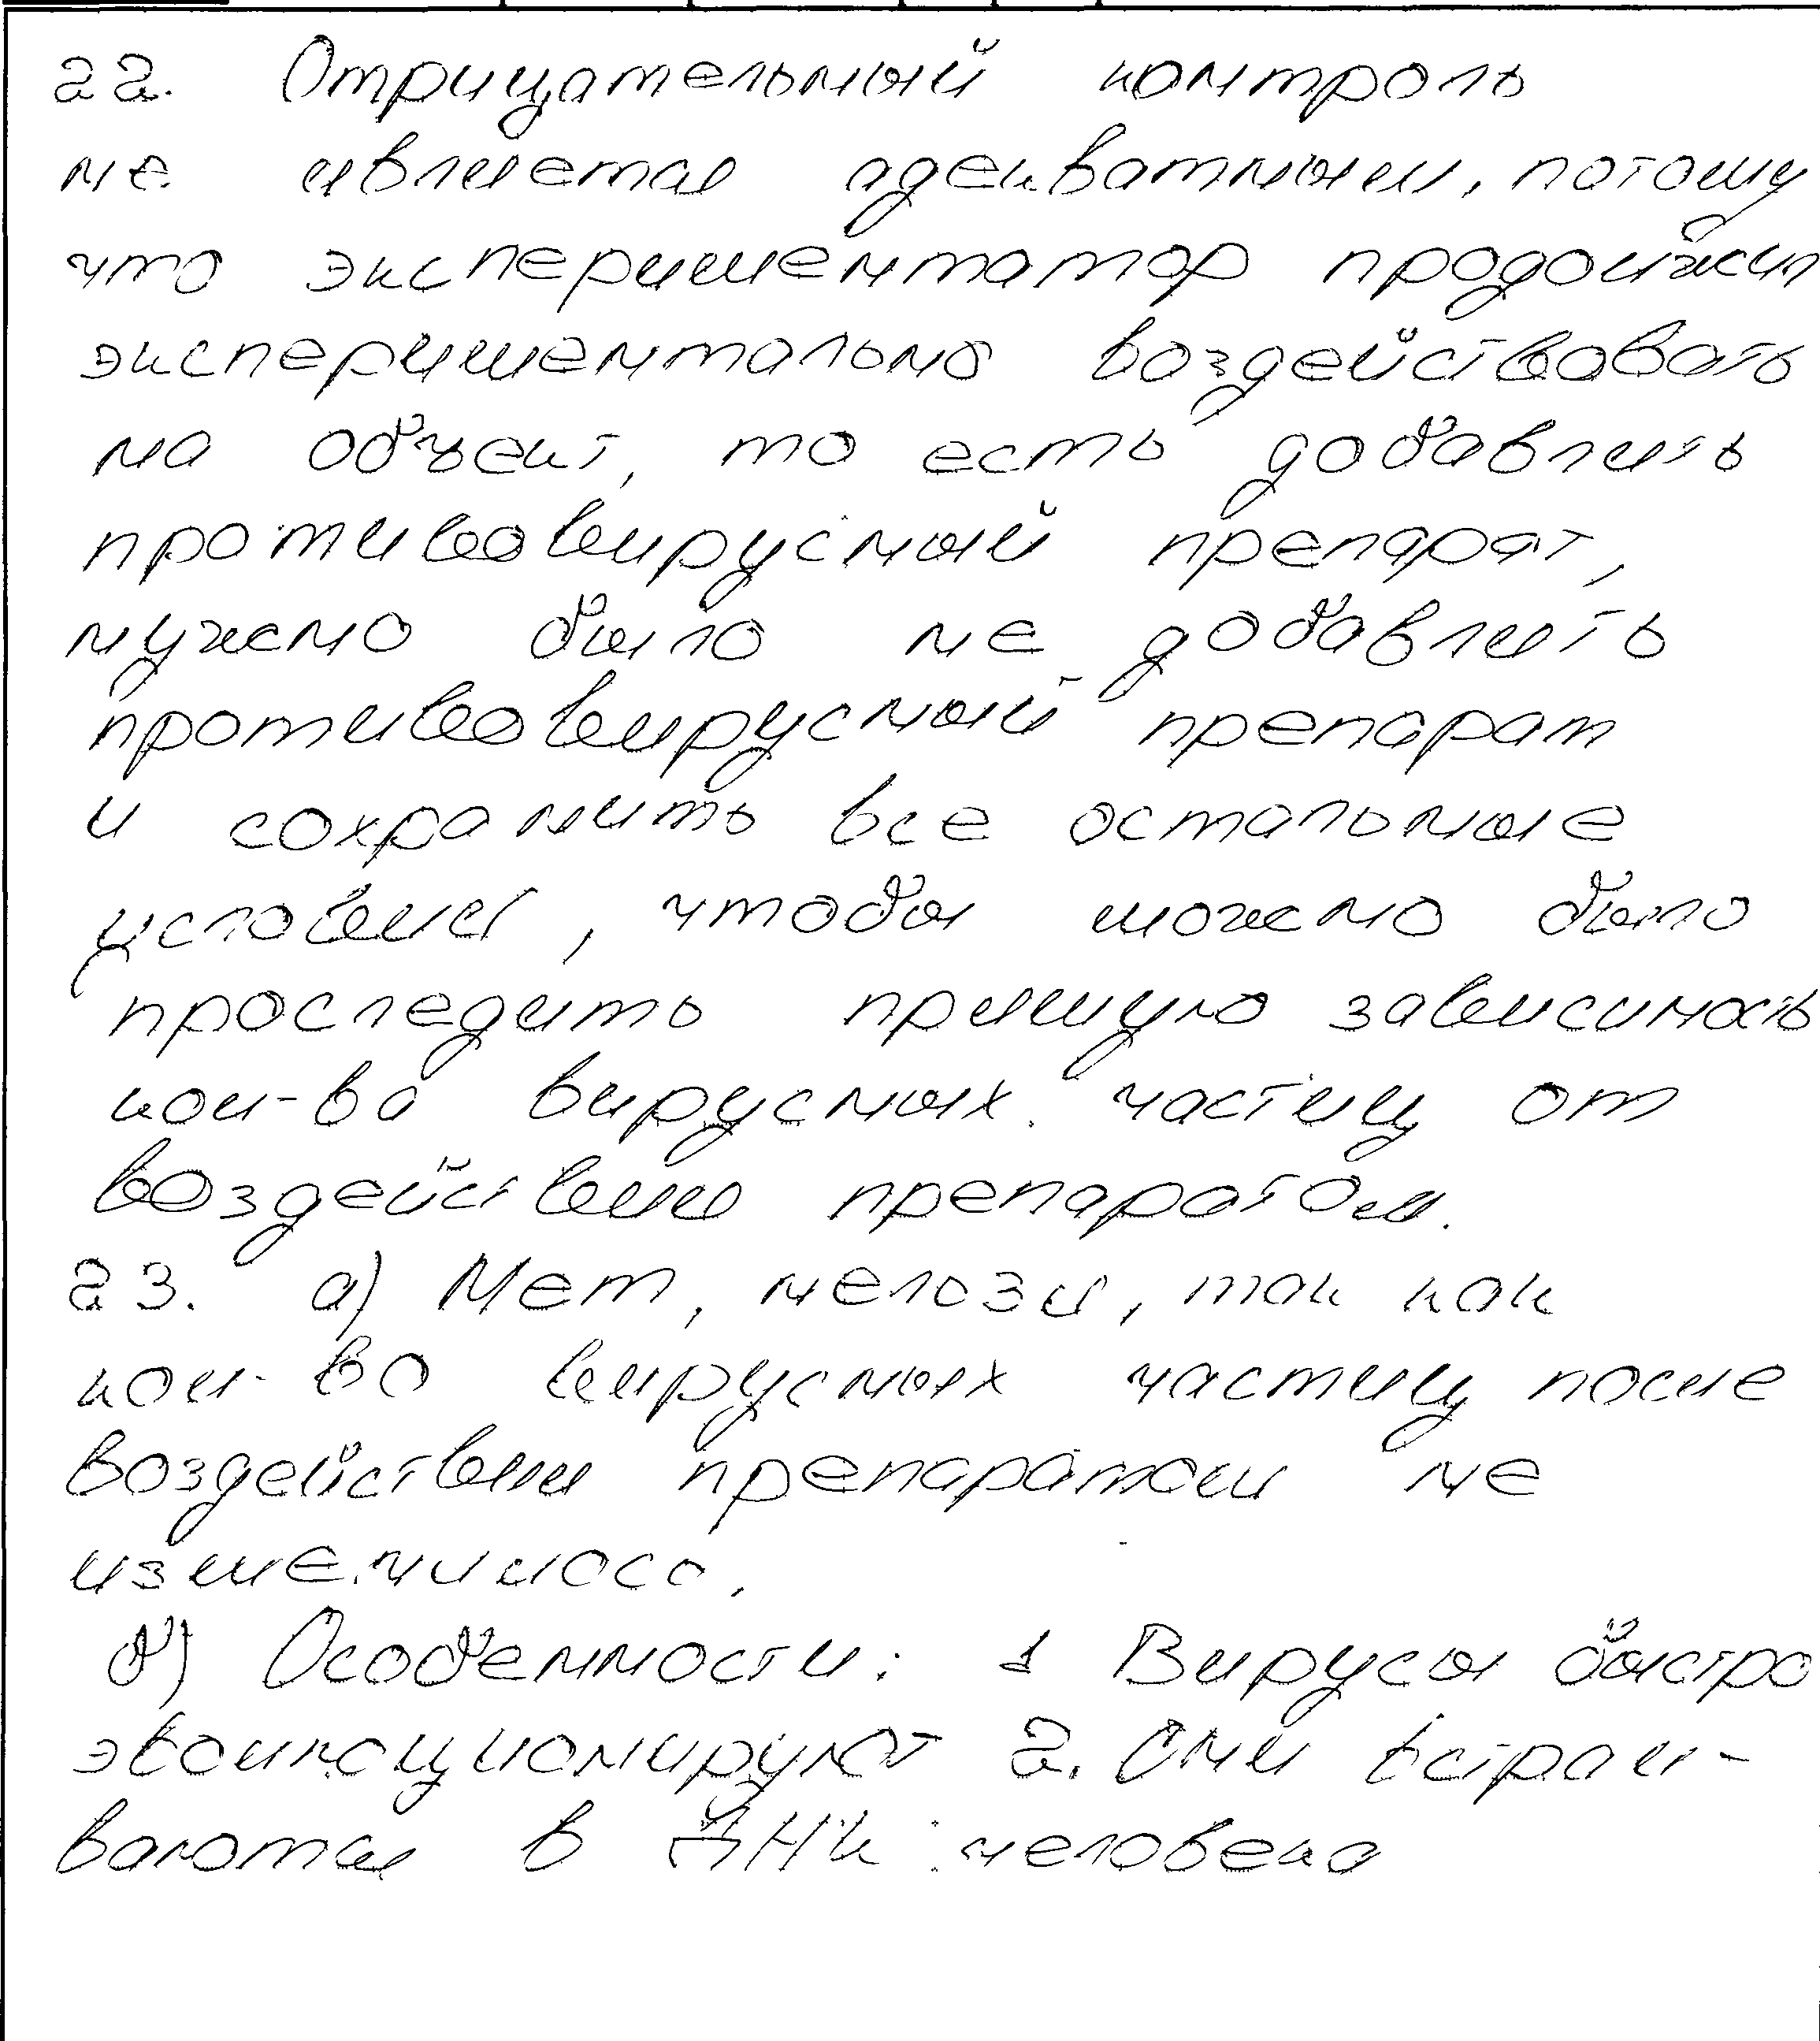 22. Отрицательный контроль
не является адекватным, потому
что экспериментатор продолжил
экспериментально воздействовать
на объект, то есть добавлять
противовирусный препарат,
нужно было не добавлять
противовирусный препарат
и сохранить все остальные
условия, чтобы можно было
проследить прямую зависимость
кол-ва вирусных частиц от
воздействия препаратом.
23. а) Нет, нельзя, так как
кол-во вирусных частиц после
воздействия препаратом не
изменилось.
б) Особенности: 1 Вирусы быстро
эволюционируют 2. Они встраи-
ваются в ДНК человека